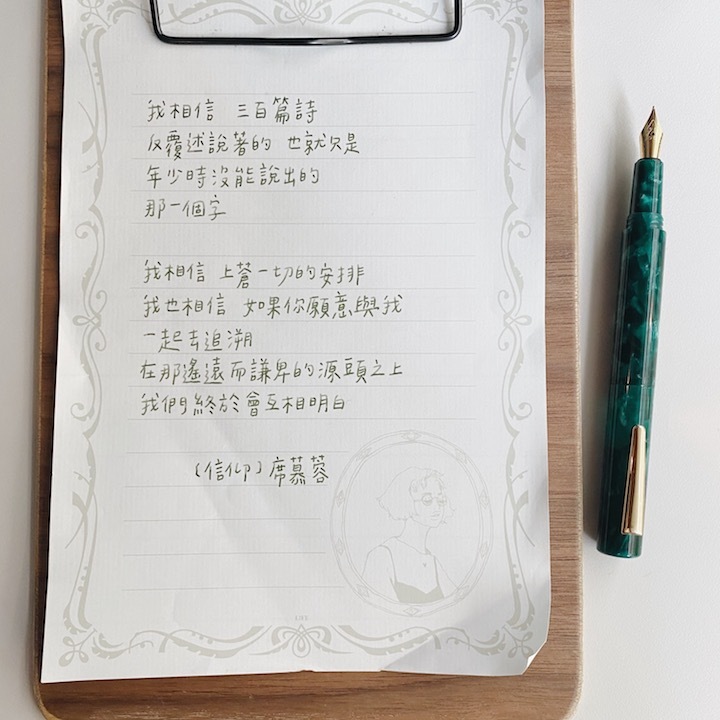 我相信 三百篇詩
反覆述說著的 也就只是
年少時沒能說出的
那一個字
我相信 上蒼一切的安排
我也相信 如果你願意與我
一起去追溯
在那遙遠而謙卑的源頭之上
我們終於會互相明白
(信仰) 席慕蓉